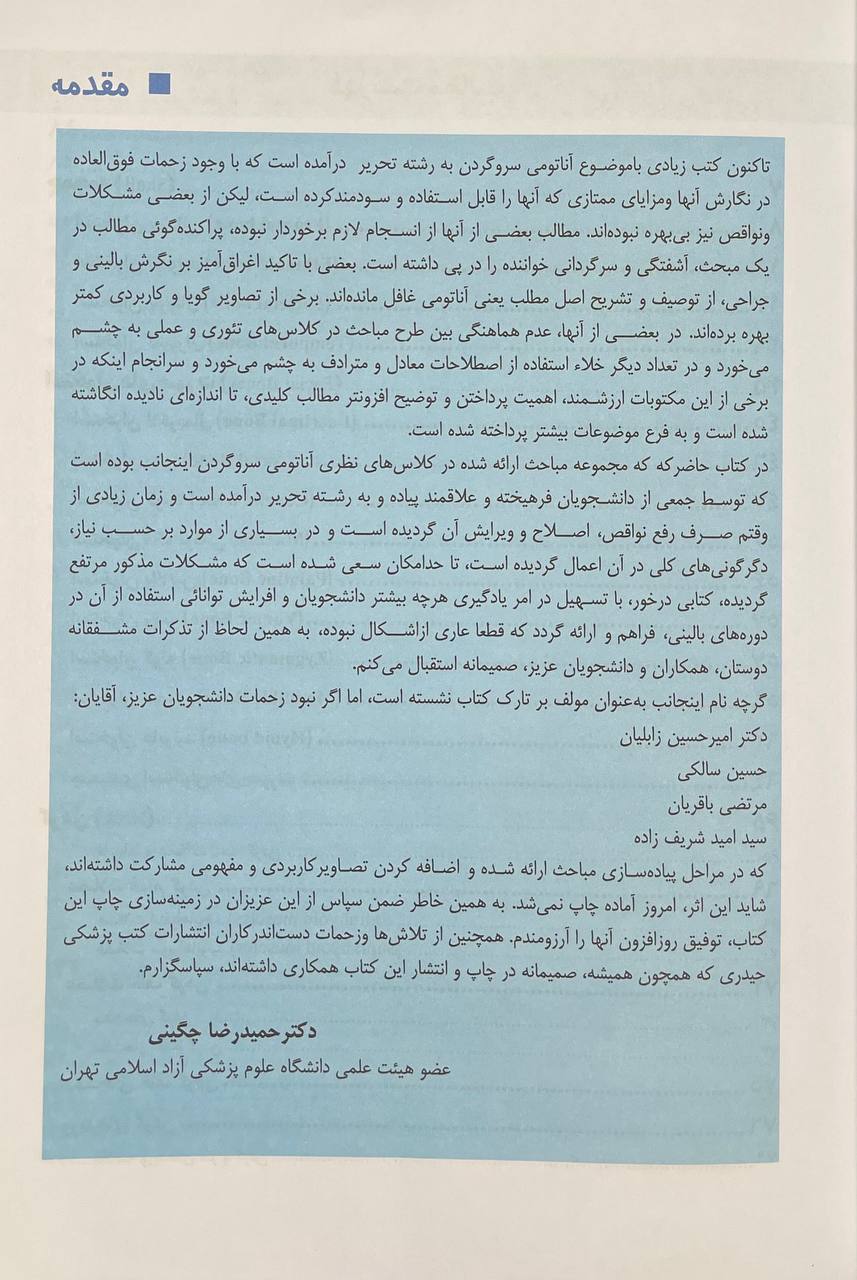 مقدمه
تاکنون کتب زیادی باموضوع آناتومی سروگردن به رشته تحریر درآمده است که با وجود زحمات فوق‌العاده
در نگارش آنها ومزایای ممتازی که آنها را قابل استفاده و سودمندکرده است، لیکن از بعضی مشکلات
ونواقص نیز بی‌بهره نبوده‌اند. مطالب بعضی از آنها از انسجام لازم برخوردار نبوده، پراکنده‌گوئی مطالب در
یک مبحث، آشفتگی و سرگردانی خواننده را در پی داشته است. بعضی با تاکید اغراق‌آمیز بر نگرش بالینی و
جراحی، از توصیف و تشریح اصل مطلب یعنی آناتومی غافل مانده‌اند. برخی از تصاویر گویا و کاربردی کمتر
بهره برده‌اند. در بعضی از آنها، عدم هماهنگی بین طرح مباحث در کلاس‌های تئوری و عملی به چشم
می‌خورد و در تعداد دیگر خلاء استفاده از اصطلاحات معادل و مترادف به چشم می‌خورد و سرانجام اینکه در
برخی از این مکتوبات ارزشمند، اهمیت پرداختن و توضیح افزونتر مطالب کلیدی، تا اندازه‌ای نادیده انگاشته
شده است و به فرع موضوعات بیشتر پرداخته شده است.
در کتاب حاضرکه که مجموعه مباحث ارائه شده در کلاس‌های نظری آناتومی سروگردن اینجانب بوده است
که توسط جمعی از دانشجویان فرهیخته و علاقمند پیاده و به رشته تحریر درآمده است و زمان زیادی از
وقتم صرف رفع نواقص، اصلاح و ویرایش آن گردیده است و در بسیاری از موارد بر حسب نیاز،
دگرگونی‌های کلی در آن اعمال گردیده است، تا حدامکان سعی شده است که مشکلات مذکور مرتفع
گردیده، کتابی درخور، با تسهیل در امر یادگیری هرچه بیشتر دانشجویان و افرایش توانائی استفاده از آن در
دوره‌های بالینی، فراهم و ارائه گردد که قطعا عاری ازاشکال نبوده، به همین لحاظ از تذکرات مشفقانه
دوستان، همکاران و دانشجویان عزیز، صمیمانه استقبال می‌کنم.
گرچه نام اینجانب به‌عنوان مولف بر تارک کتاب نشسته است، اما اگر نبود زحمات دانشجویان عزیز، آقایان:
دکتر امیرحسین زابلیان
حسین سالکی
مرتضی باقریان
سید امید شریف زاده
که در مراحل پیاده‌سازی مباحث ارائه شده و اضافه کردن تصاویرکاربردی و مفهومی مشارکت داشته‌اند،
شاید این اثر، امروز آماده چاپ نمی‌شد. به همین خاطر ضمن سپاس از این عزیزان در زمینه‌سازی چاپ این
کتاب، توفیق روزافزون آنها را آرزومندم. همچنین از تلاش‌ها وزحمات دست‌اندرکاران انتشارات کتب پزشکی
حیدری که همچون همیشه، صمیمانه در چاپ و انتشار این کتاب همکاری داشته‌اند، سپاسگزارم.
دکترحمیدرضا چگینی
عضو هیئت علمی دانشگاه علوم پزشکی آزاد اسلامی تهران